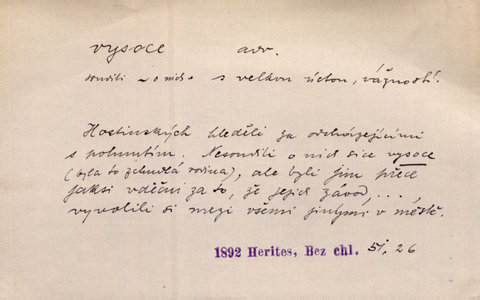 vysoce adv.
soudili ~ o nich s velkou úctou, vážností.
Hostinských hleděli za odcházejícími
s pohnutím. Nesoudili o nich sice vysoce
(byla to zchudlá rodina), ale byli jim přece
jaksi vděčni za to, že jejich závod, . . ,
vyvolili si mezi všemi jinými v městě.
1892 Herites, Bez chl. 51, 26